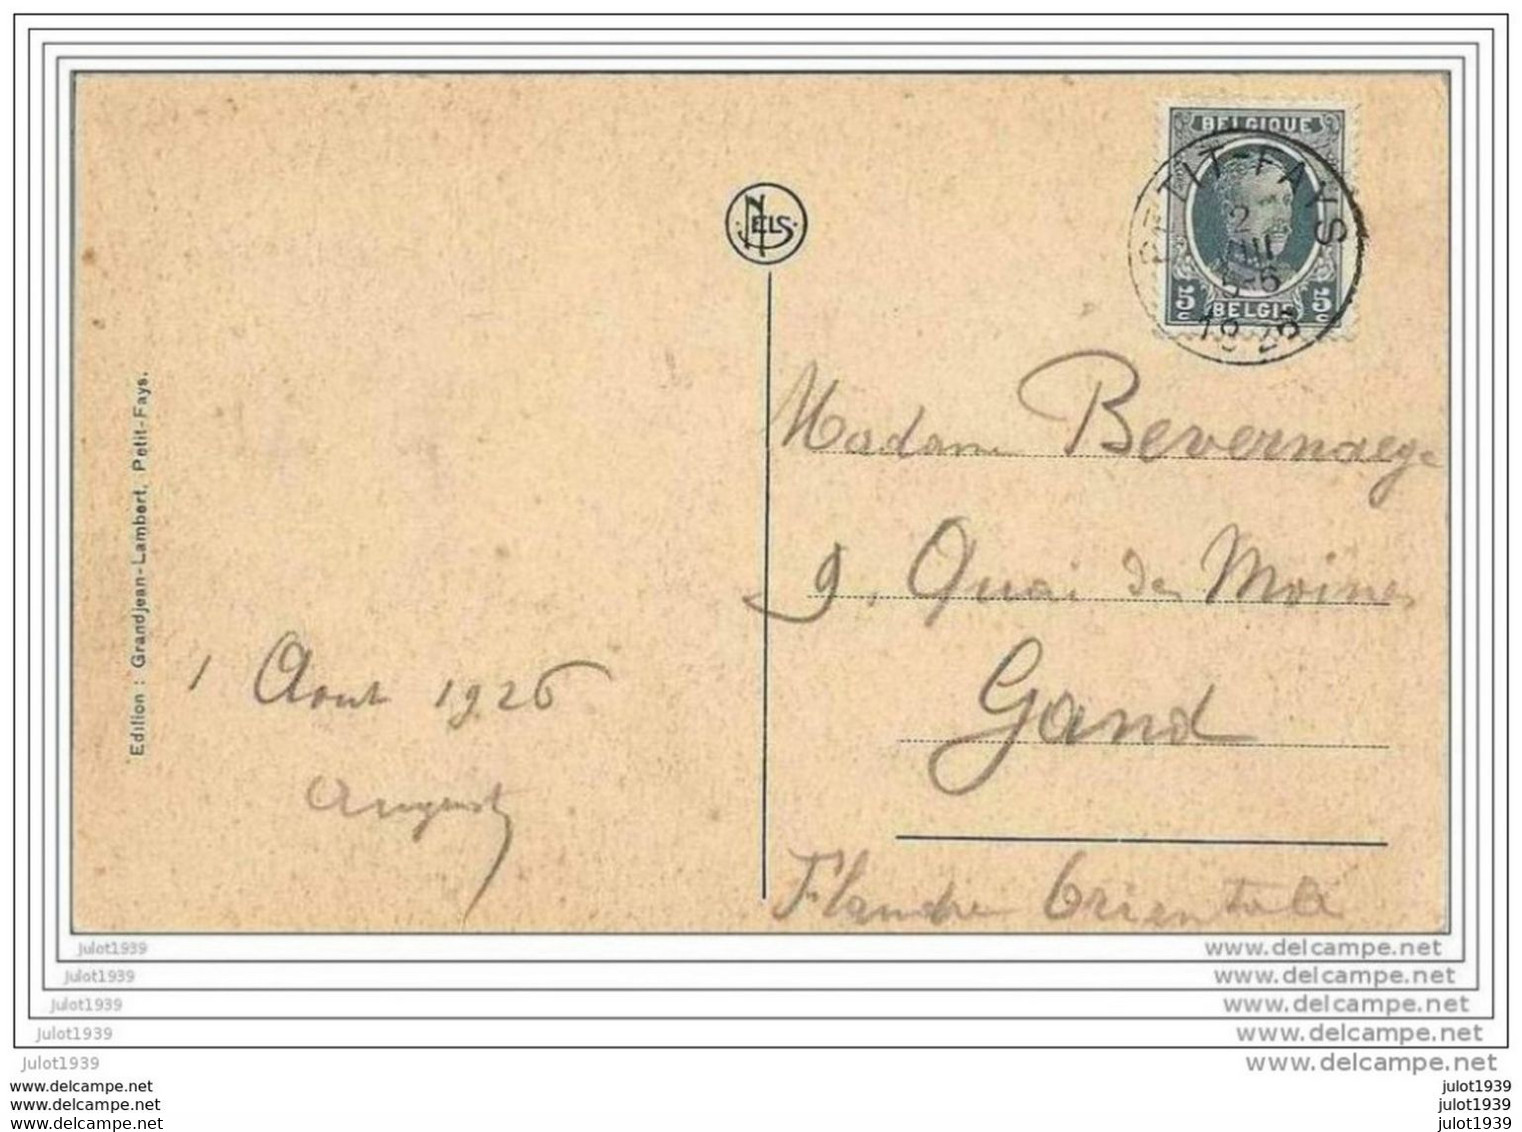 BELGIQUE
PETIT-FAYS
2
VIII
5-6
1926
5c BELGIE 5c
NELS
Edition : Grandjean-Lambert, Petit-Fays.
1 Aout 1926
August
Madame Bevernaege
9. Quai des Moines
Gand
Flandre Orientale
julot1939 www.delcampe.net
julot1939 www.delcampe.net
julot1939 www.delcampe.net
julot1939 www.delcampe.net
julot1939 www.delcampe.net
www.delcampe.net julot1939
www.delcampe.net julot1939
www.delcampe.net julot1939